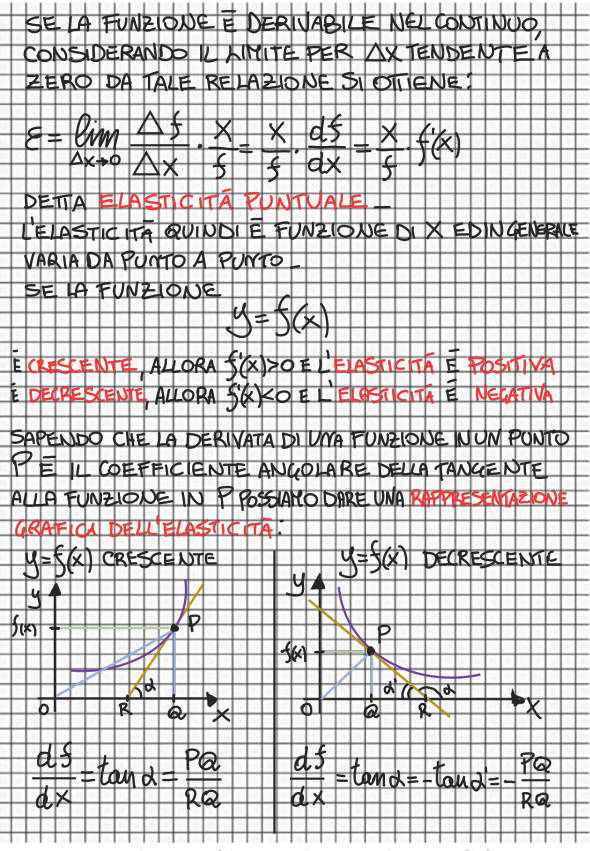 SE LA FUNZIONE È DERIVABILE NEL CONTINUO,
CONSIDERANDO IL LIMITE PER ΔX TENDENTE A
ZERO DA TALE RELAZIONE SI OTTIENE:
ε = lim Δx→0 Δf/Δx · x/f = x/f · df/dx = x/f · f'(x)
DETTA ELASTICITÀ PUNTUALE _
L'ELASTICITÀ QUINDI È FUNZIONE DI X ED IN GENERALE
VARIA DA PUNTO A PUNTO _
SE LA FUNZIONE
y = f(x)
È CRESCENTE, ALLORA f'(x)>0 E L'ELASTICITÀ È POSITIVA
È DECRESCENTE, ALLORA f'(x)<0 E L'ELASTICITÀ È NEGATIVA
SAPENDO CHE LA DERIVATA DI UNA FUNZIONE IN UN PUNTO
P È IL COEFFICIENTE ANGOLARE DELLA TANGENTE
ALLA FUNZIONE IN P POSSIAMO DARE UNA RAPPRESENTAZIONE
GRAFICA DELL'ELASTICITÀ:
y=f(x) CRESCENTE
y
f(x)
P
α
O
R
Q
X
df/dx = tan α = PQ/RQ
y=f(x) DECRESCENTE
y
P
f(x)
α'
α
O
Q
R
X
df/dx = tan α = -tan α' = - PQ/RQ